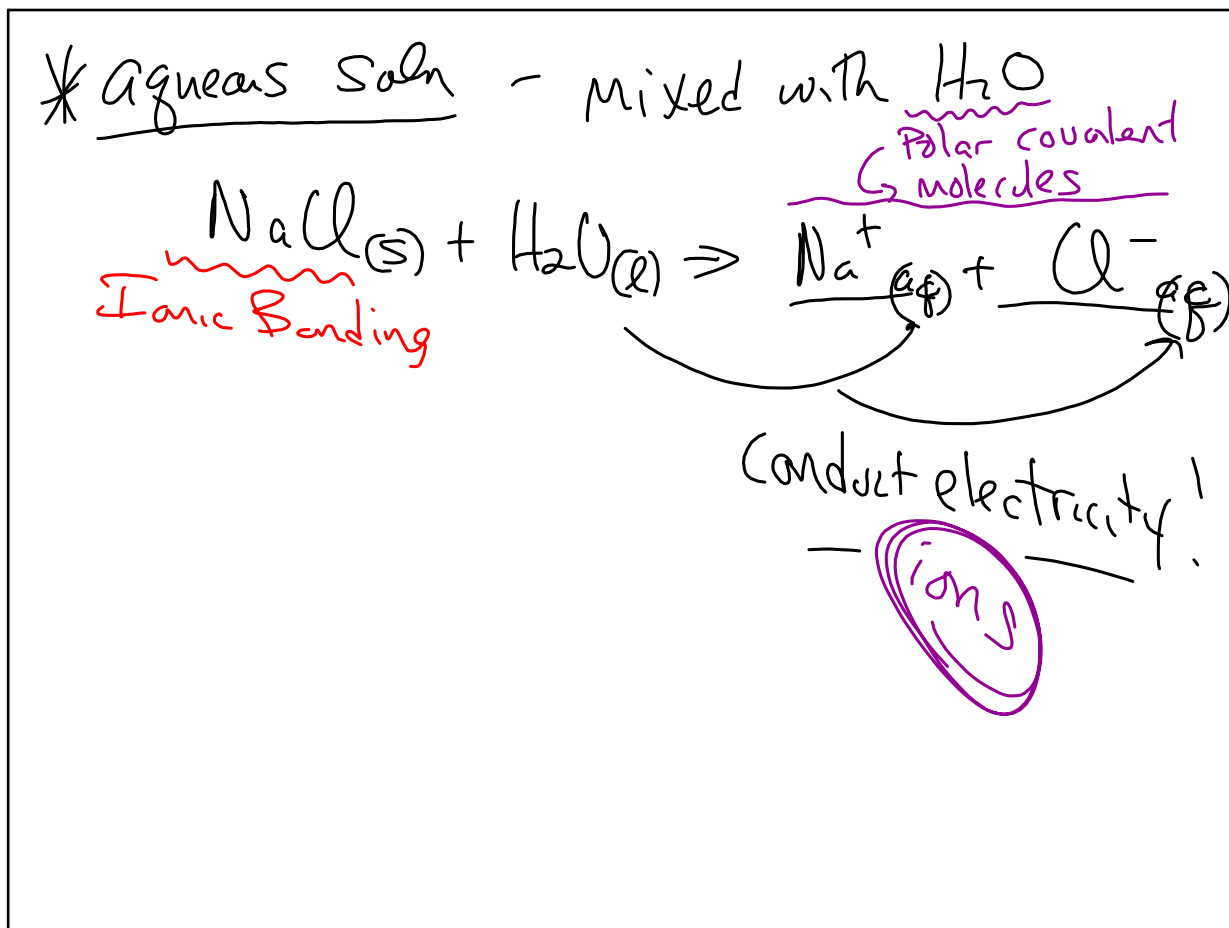 * aqueous soln - mixed with H₂O
Polar covalent
molecules
NaCl(s) + H₂O(l) ⇒ Na⁺(aq) + Cl⁻(aq)
Ionic Bonding
Conduct electricity!
ions